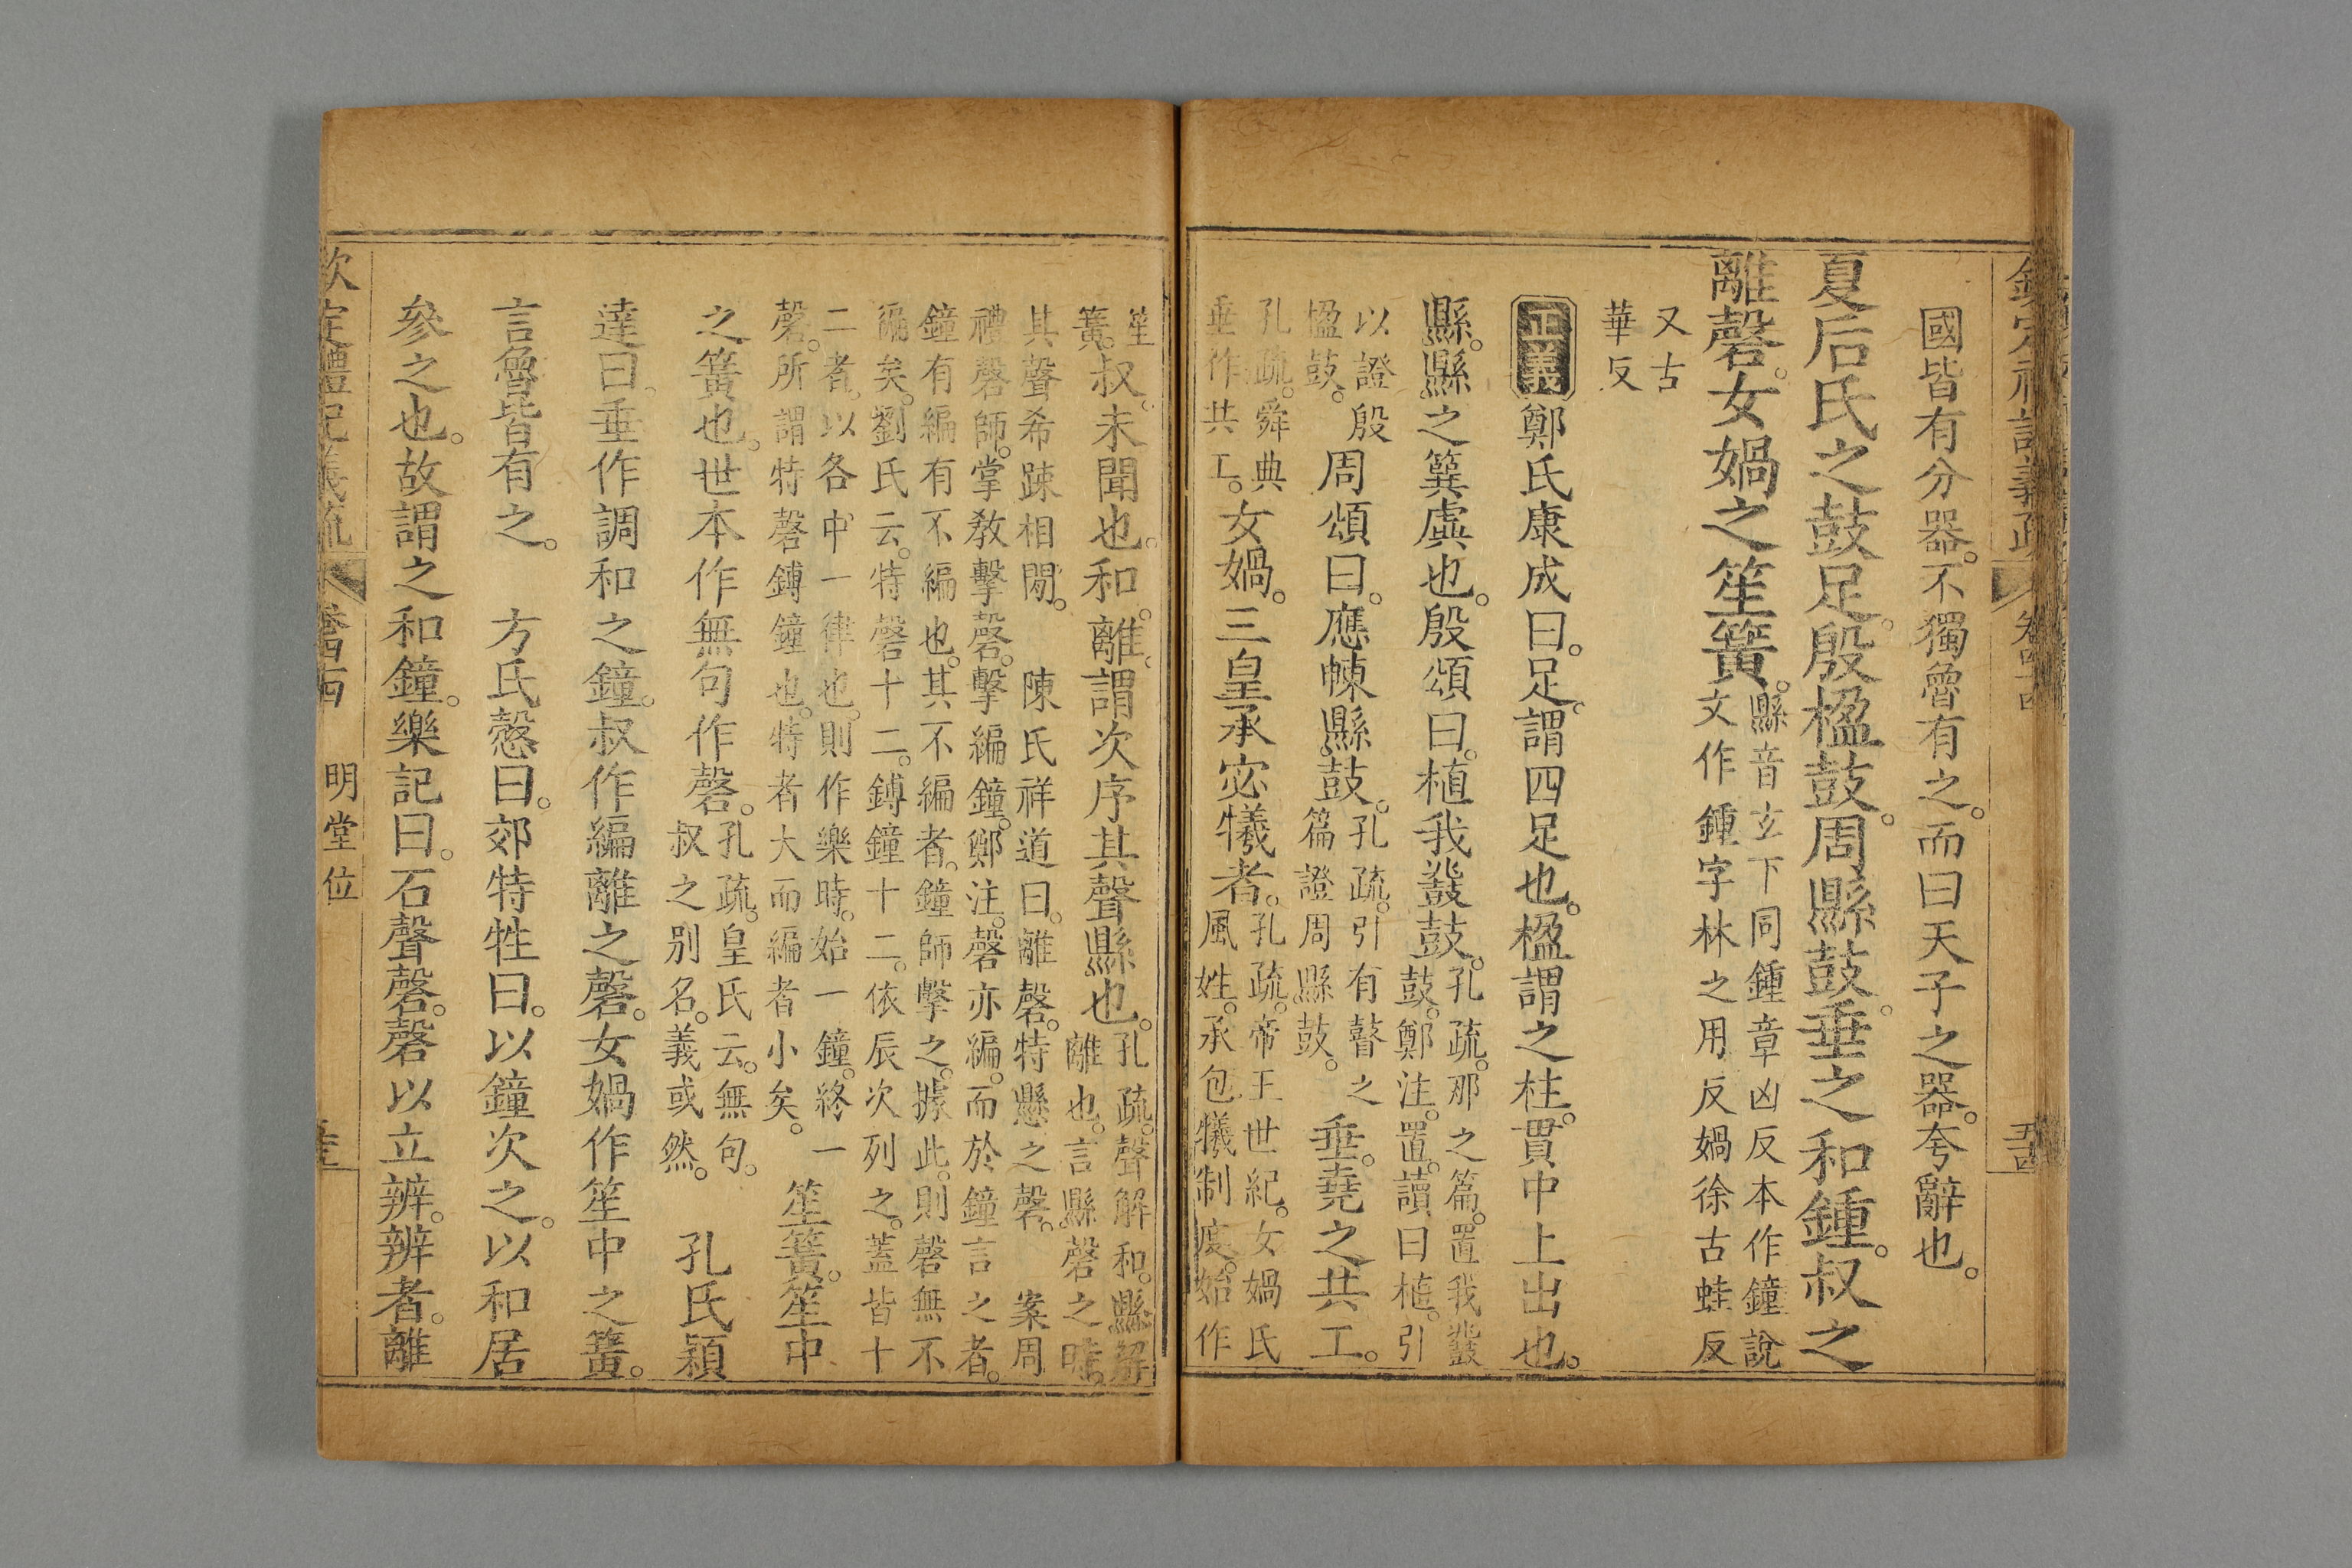 國皆有分器。不獨魯有之。而曰天子之器。夸辭也。
夏后氏之鼓足。殷楹鼓。周縣鼓。垂之和鍾。叔之
離磬。女媧之笙簧。
縣音玄下同鍾章凶反本作鐘說
文作鍾字林之用反媧徐古蛙反
又古
華反
正義 鄭氏康成曰。足。謂四足也。楹謂之柱。貫中上出也。
縣。縣之簨虡也。殷頌曰。植我鼗鼓。
孔疏。那之篇。置我鼗
鼓。鄭注。置。讀曰植。引
以證殷
楹鼓。
周頌曰。應朄縣鼓。
孔疏。引有瞽之
篇證周縣鼓。
垂。堯之共工。
孔疏。舜典
垂作共工。
女媧。三皇承宓犧者。
孔疏。帝王世紀。女媧氏
風姓。承包犧制度。始作
笙
簧。
叔。未聞也。和。離。謂次序其聲縣也。
孔疏。聲解和。縣解
離也。言縣磬之時。
其聲希疎相閒。 陳氏祥道曰。離磬。特懸之磬。 案周
禮磬師。掌教擊磬。擊編鐘。鄭注。磬亦編。而於鐘言之者。
鐘有編有不編也。其不編者。鐘師擊之。據此。則磬無不
編矣。劉氏云。特磬十二。鎛鐘十二。依辰次列之。蓋皆十
二者。以各中一律也。則作樂時。始一鐘。終一
磬。所謂特磬鎛鐘也。特者大而編者小矣。
笙簧。笙中
之簧也。世本作無句作磬。
孔疏。皇氏云。無句。
叔之別名。義或然。
孔氏穎
達曰。垂作調和之鐘。叔作編離之磬。女媧作笙中之簧。
言魯皆有之。 方氏慤曰。郊特牲曰。以鐘次之。以和居
參之也。故謂之和鐘。樂記曰。石聲磬。磬以立辨。辨者。離
明堂位